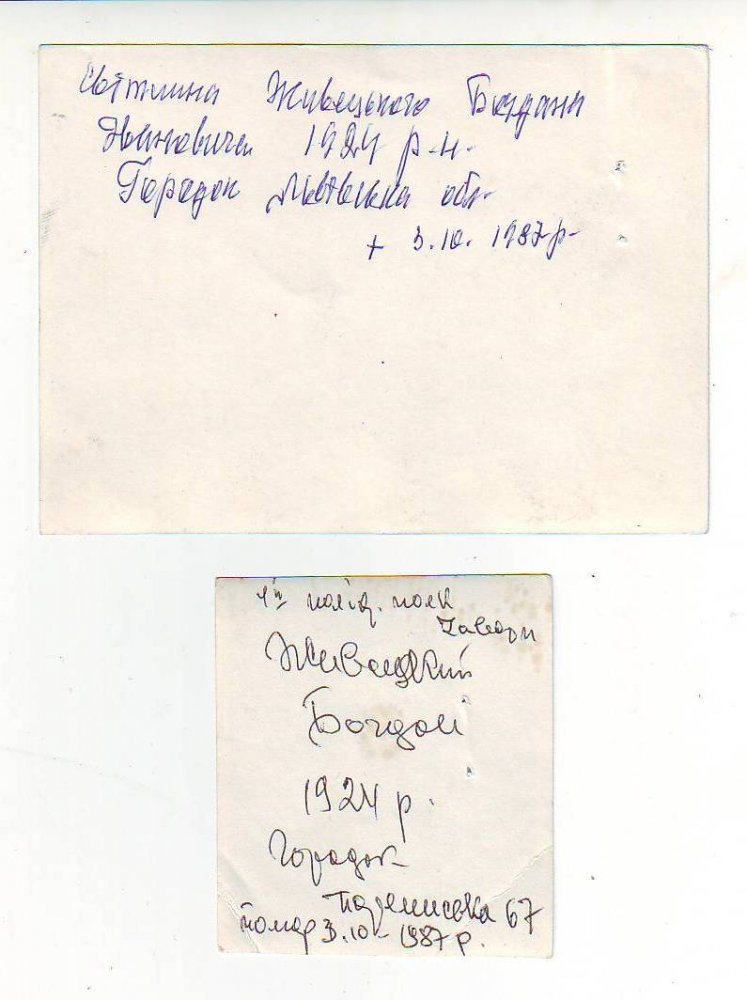 Світлина Живецького Богдана
Івановича 1924 р.н.
Городок Львівська обл.
+ 3.10. 1987р.
4й поліц. полк
Живецкий
Богдан
1924 р.
Городок
67
помер 3.10-1987 р.